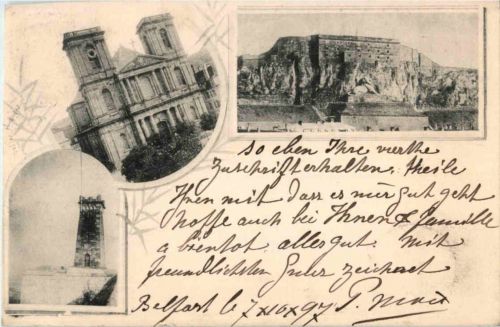 so eben Ihre vierthe
Zuschrift erhalten, theile
Ihnen mit dass es mir gut geht
hoffe auch bei Ihnen & famille
a bientot alles gut. mit
freundlichsten zeichnet
Belfort le 7 x 10 x 97 P.